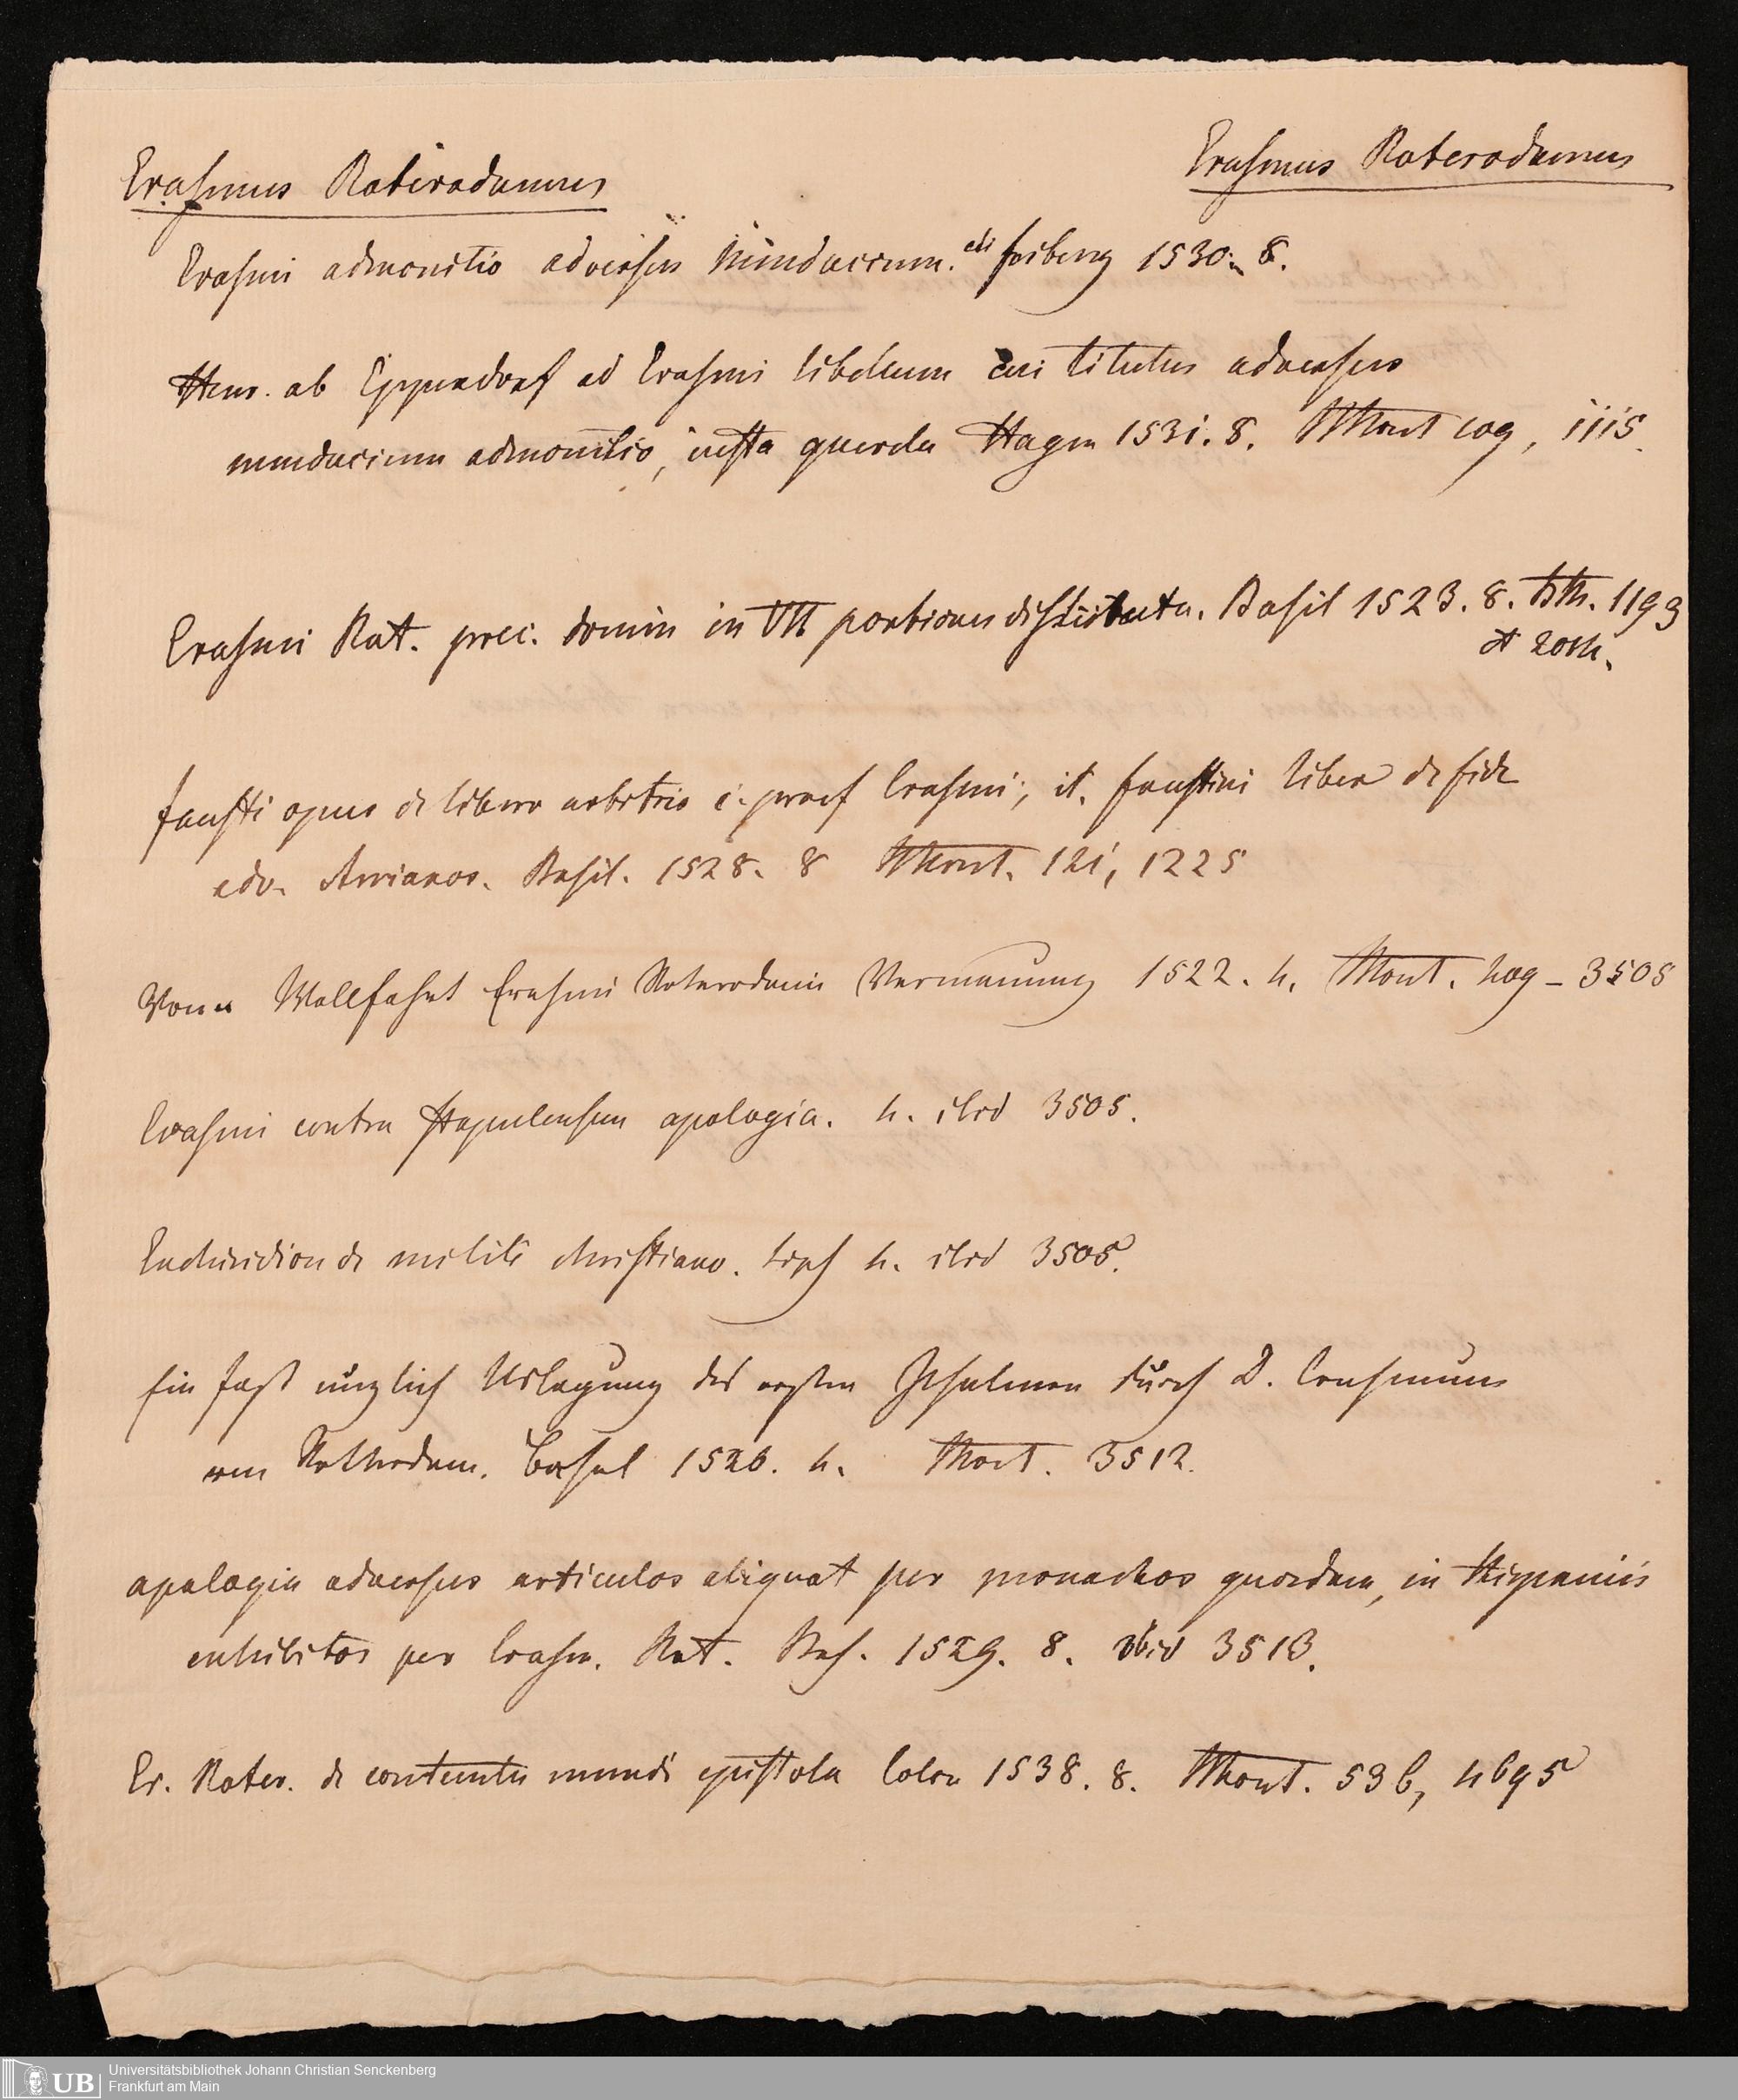 Erasmus Roterodamus
Erasmus Roterodamus
Erasmi admonitio adversus mendacium. edi friberg 1530. 8.
Henr. ab Eppendorf ad Erasmi libellum cui titulus adversus
mendacium admonitio, iusta querela Hagen 1531. 8. Mont cog, 1115.
Erasmi Rot. prec. domin in VII portiones distributa. Basil 1523. 8. Bth. 1193
fausti opus de libero arbitrio c. praef Erasmi, it. faustini liber de fide
adv. Arrianos. Basil. 1528. 8 Mont. 121, 1225
Von Wallfahrt Erasmi Roterodami Vermanung 1522. 4. Mont. hog - 3505
Erasmi contra Stapulensem apologia. 4. ibid 3505.
Enchiridion de milite christiano. Lips 4. ibid 3505.
Ein fast nüzlich Uslegung des ersten Psalmen durch D. Erasmum
von Rotherdam. Basel 1520. 4. Mont. 3512.
apologia adversus articulos aliquot per monachos quosdam, in Hispaniis
exhibitos per Erasm. Rot. Bas. 1529. 8. ibid 3513.
Er. Roter. de contemtu mundi epistola Colon 1538. 8. Mont. 536, 4695
Universitätsbibliothek Johann Christian Senckenberg
Frankfurt am Main
UB